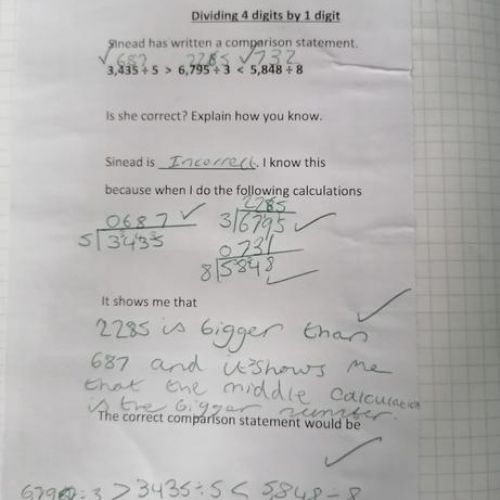 Dividing 4 digits by 1 digit
Sinead has written a comparison statement.
687 2285 732
3,435 ÷ 5 > 6,795 ÷ 3 < 5,848 ÷ 8
Is she correct? Explain how you know.
Sinead is Incorrect. I know this
because when I do the following calculations
0687 2285
5 3435 3 6795
0731
8 5848
It shows me that
2285 is bigger than
687 and it shows me
that the middle calculation
is the bigger number.
The correct comparison statement would be
6795 ÷ 3 > 3435 ÷ 5 < 5,848 ÷ 8